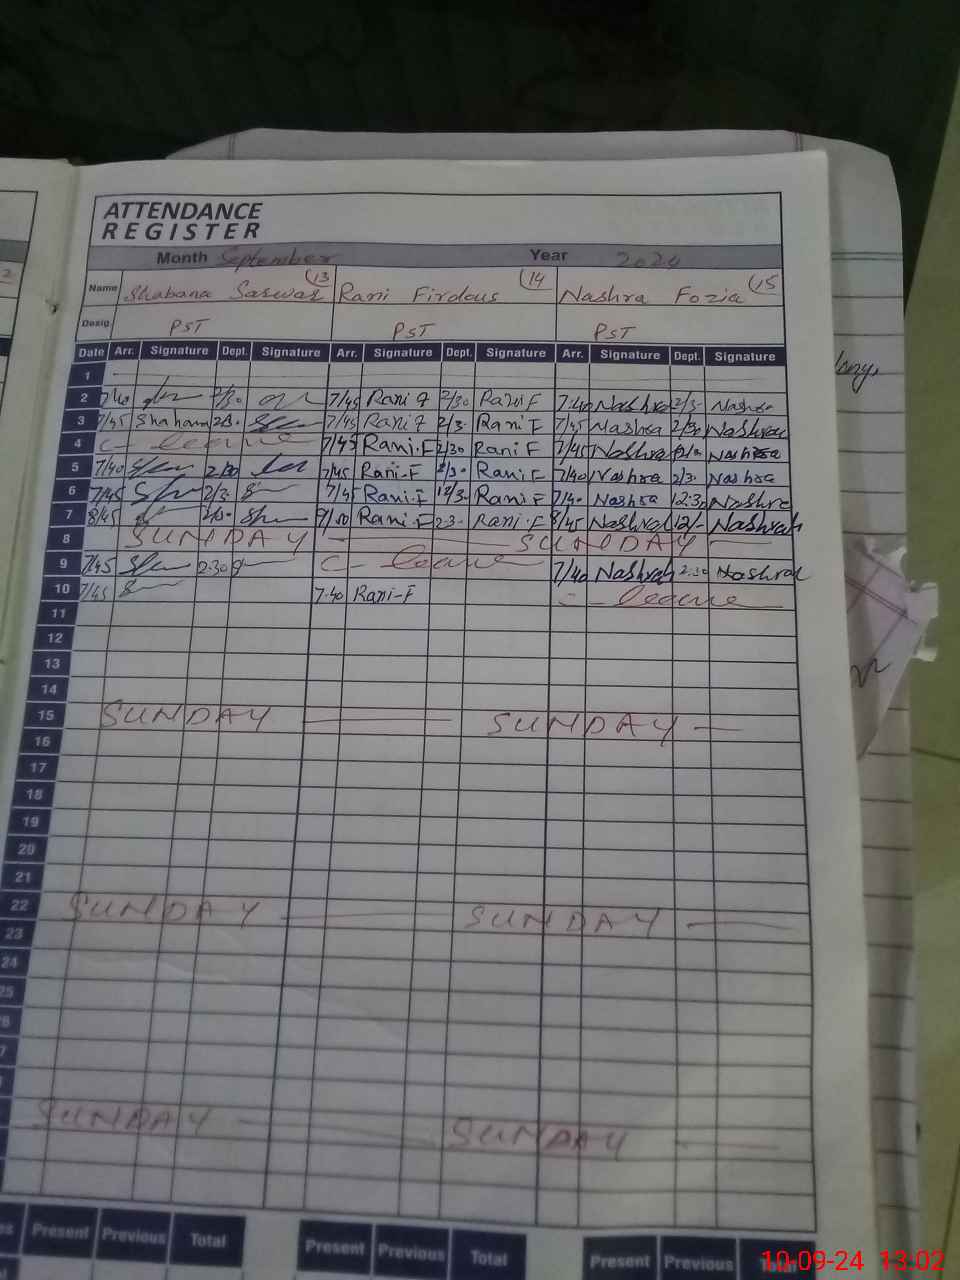 ATTENDANCE
REGISTER
Month September Year 2024
Name Shabana Sarwar (13 Rani Firdous (14 Nashra Fozia (15
Desig. PST PST PST
Date Arr. Signature Dept. Signature Arr. Signature Dept. Signature Arr. Signature Dept. Signature
1
2 7/40 2/30 7/45 Rani F 2/30 Rani F 7:40 Nashra 2/3. Nashra
3 7/45 Shabana 2/3. 7/45 Rani F 2/3. Rani F 7/45 Nashra 2/30 Nashra
4 C- leave 7/45 Rani.F 2/30 Rani F 7/45 Nashra Nashra
5 7/40 2/30 7/45 Rani.F 2/30 Rani.F 7/40 Nashra 2/3. Nashra
6 7/45 2/3. 7/45 Rani.F 12/3. Rani F 7/40 Nashra 12:30 Nashra
7 8/45 Rani.F 2.3. Rani.F 8/45 Nashrah 12/- Nashrah
8 SUNDAY SUNDAY
9 7/45 2:30 C- leave 7/40 Nashrah 2:30 Nashrah
10 7/45 7:40 Rani-F C- leave
11
12
13
14
15 SUNDAY SUNDAY
16
17
18
19
20
21
22 SUNDAY SUNDAY
23
24
25
SUNDAY SUNDAY
Present Previous Total Present Previous Total Present Previous Total
10-09-24 13:02